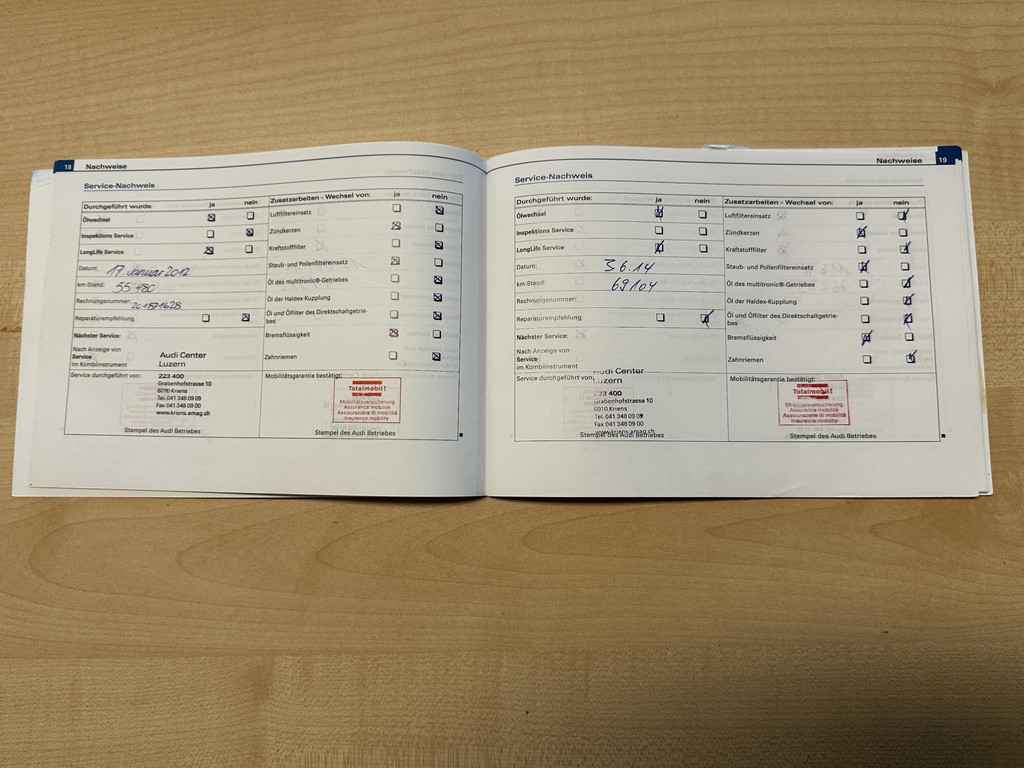 18 Nachweise
Service-Nachweis
Durchgeführt wurde: ja nein
Ölwechsel
Inspektions Service
LongLife Service
Datum: 17. Januar 2012
km-Stand: 55'480
Rechnungsnummer:
Reparaturempfehlung
Nächster Service:
Nach Anzeige von
Service
im Kombiinstrument
Zusatzarbeiten - Wechsel von: ja nein
Luftfiltereinsatz
Zündkerzen
Kraftstofffilter
Staub- und Pollenfiltereinsatz
Öl des multitronic®-Getriebes
Öl der Haldex-Kupplung
Öl und Ölfilter des Direktschaltgetrie-
bes
Bremsflüssigkeit
Zahnriemen
Service durchgeführt von:
Audi Center
Luzern
223 400
Grabenhofstrasse 10
6010 Kriens
Tel. 041 348 09 09
Fax 041 348 09 00
www.kriens.amag.ch
Stempel des Audi Betriebes
Mobilitätsgarantie bestätigt:
Totalmobil!
Mobilitätsversicherung
Assurance mobilité
Assicurazione di mobilità
Insurance mobility
Stempel des Audi Betriebes
Nachweise 19
Service-Nachweis
Durchgeführt wurde: ja nein
Ölwechsel
Inspektions Service
LongLife Service
Datum: 3.6.14
km-Stand: 69104
Rechnungsnummer:
Reparaturempfehlung
Nächster Service:
Nach Anzeige von
Service
im Kombiinstrument
Zusatzarbeiten - Wechsel von: ja nein
Luftfiltereinsatz
Zündkerzen
Kraftstofffilter
Staub- und Pollenfiltereinsatz
Öl des multitronic®-Getriebes
Öl der Haldex-Kupplung
Öl und Ölfilter des Direktschaltgetrie-
bes
Bremsflüssigkeit
Zahnriemen
Service durchgeführt von:
Audi Center
Luzern
223 400
Grabenhofstrasse 10
6010 Kriens
Tel. 041 348 09 09
Fax 041 348 09 00
www.kriens.amag.ch
Stempel des Audi Betriebes
Mobilitätsgarantie bestätigt:
Totalmobil!
Mobilitätsversicherung
Assurance mobilité
Assicurazione di mobilità
Insurance mobility
Stempel des Audi Betriebes